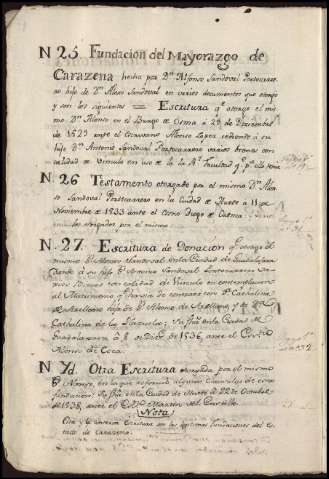 N 25 Fundacion del Mayorazgo de
Carazena hecha por Dn. Alfonso Sandoval Portocarre-
ro hijo de Dn. Alonso Sandoval en varios documentos que otorgó
y son los siguientes = Escritura qe. otorgó el mis-
mo Dn. Alonso en el Burgo de Osma á 29 de Diciembre
de 1529 ante el Escrivano Alonso Lopez cediendo á su
hijo Dn. Antonio Sandoval Portocarrero varios bienes con
calidad de Vinculo en uso de la Rl. Facultad qe. pa. ello tenia
N 26 Testamento otorgado por el mismo Dn. Alon-
so Sandoval Portocarrero en la Ciudad de á 11 de
Noviembre de 1533 ante el Esno. Diego de
otorgado por el mismo
N 27 Escritura de Donacion qe. otorgó el
mismo Dn. Alonso Sandoval en la Ciudad de Guadalaxara
á su hijo Dn. Antonio Sandoval Portocarrero de va-
rios Bienes con calidad de Vinculo en contemplacion
al Matrimonio qe. havia de contraer con Da. Catalina
de Arellano hija de Dn. Alonso de Arellano y de Da.
Cathalina de la Su fha. en la Ciudad de
Guadalaxara á 8 de de 1536, ante el Esno.
Alonso de Coca.
N Yd. Otra Escritura otorgada por el mismo
Dn. Alonso, en la que reformó algunas Clausulas de
fundacion: Su fha. en la Ciudad de á 22 de Octubre
de 1538, ante el Esno. Martin del Castillo
(Nota)
Esta y la anterior Escritura son las legitimas Fundaciones del Es-
tado de Carazena.